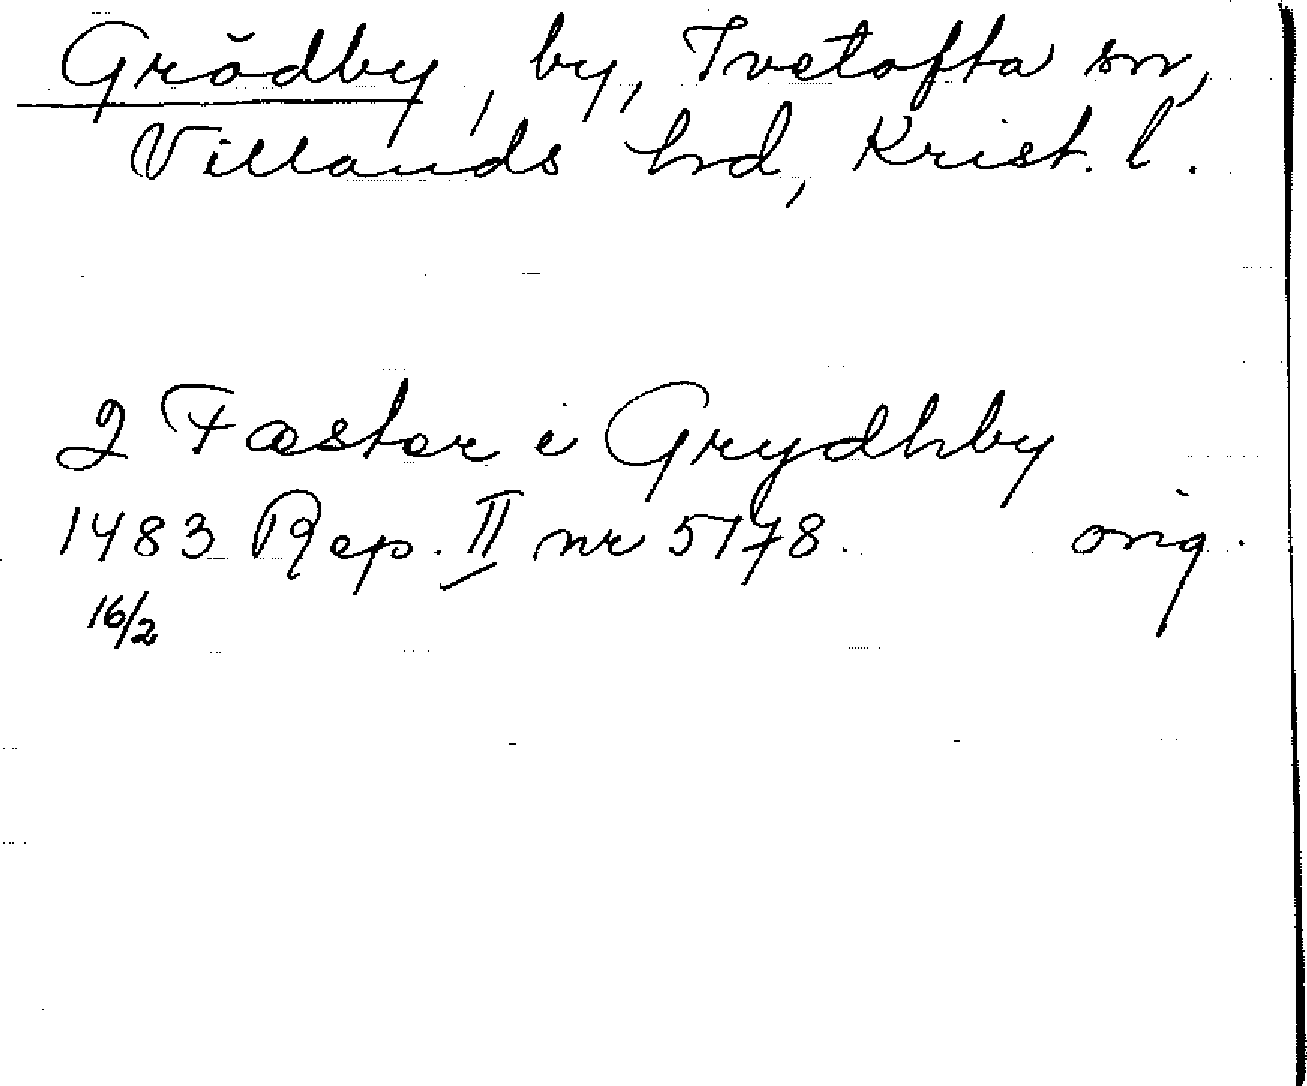 Grödby, by, Ivetofta sn,
Villands hd, Krist. l.
2 Fæster i Grydhby
1483 Rep. II nr 5178. orig.
16/2